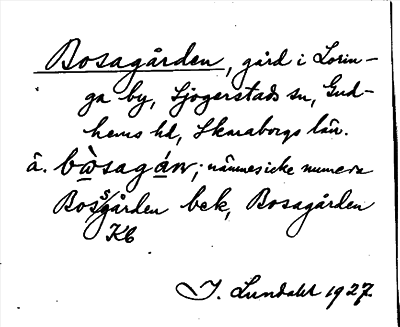 Bosagården, gård i Lorin-
ga by, Sjogerstads sn, Gud-
hems hd, Skaraborgs län.
â. bòsagán; nämnes icke numera
Bossgården bek, Bosagården
Kb
J. Lundahl 1927.